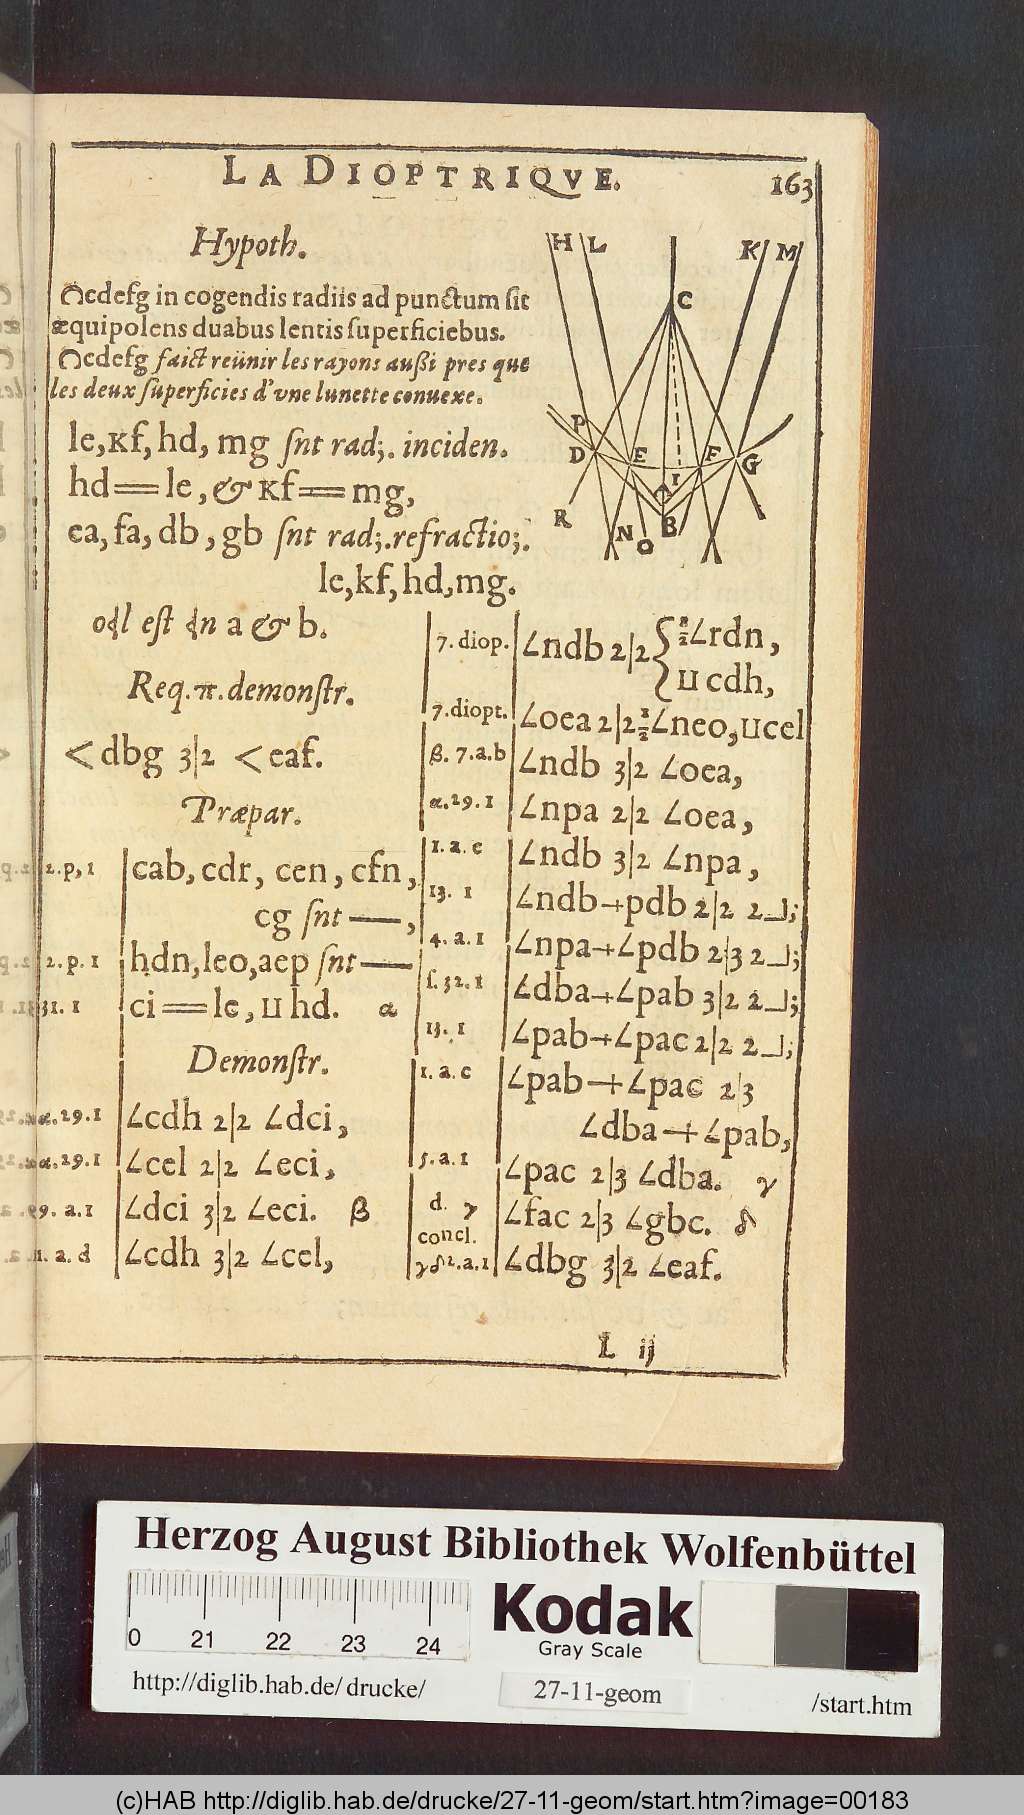 LA DIOPTRIQVE.
163
Hypoth.
cdefg in cogendis radiis ad punctum sit
æquipolens duabus lentis superficiebus.
cdefg faict reünir les rayons außi pres que
les deux superficies d'vne lunette conuexe.
le, κf, hd, mg snt rad;. inciden.
hd==le, & κf==mg,
ea, fa, db, gb snt rad;.refractio;.
le, kf, hd, mg.
est a & b.
Req. π. demonstr.
< dbg 3|2 < eaf.
Præpar.
2.p, 1 cab, cdr, cen, cfn,
cg snt —,
2. p. 1 hdn, leo, aep snt —
31. 1 ci==le, ⊔ hd. α
Demonstr.
α.29.1 ∠cdh 2|2 ∠dci,
α.29.1 ∠cel 2|2 ∠eci,
9. a.1 ∠dci 3|2 ∠eci. β
1. a. d ∠cdh 3|2 ∠cel,
7. diop. ∠ndb 2|2 { ½∠rdn,
⊔ cdh,
7.diopt. ∠oea 2|2 ½∠neo, ⊔cel
β. 7.a.b ∠ndb 3|2 ∠oea,
α.29.1 ∠npa 2|2 ∠oea,
1. a. c ∠ndb 3|2 ∠npa,
13. 1 ∠ndb+pdb 2|2 2_|;
4. a.1 ∠npa+∠pdb 2|3 2_|;
s.32.1 ∠dba+∠pab 3|2 2_|;
13. 1 ∠pab+∠pac 2|2 2_|;
1. a. c ∠pab+∠pac 2|3
∠dba+∠pab,
5.a.1 ∠pac 2|3 ∠dba. γ
d. γ ∠fac 2|3 ∠gbc. δ
concl.
γδ2.a.1 ∠dbg 3|2 ∠eaf.
H L K M
C
P
D E F G
I
A
R N O B
L ij
Herzog August Bibliothek Wolfenbüttel
0 21 22 23 24
Kodak
Gray Scale
http://diglib.hab.de/drucke/
27-11-geom
/start.htm
(c)HAB http://diglib.hab.de/drucke/27-11-geom/start.htm?image=00183